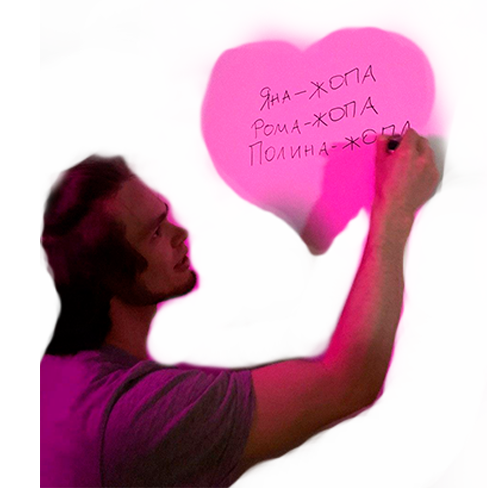 Яна-ЖОПА
Рома-ЖОПА
Полина-ЖОПА